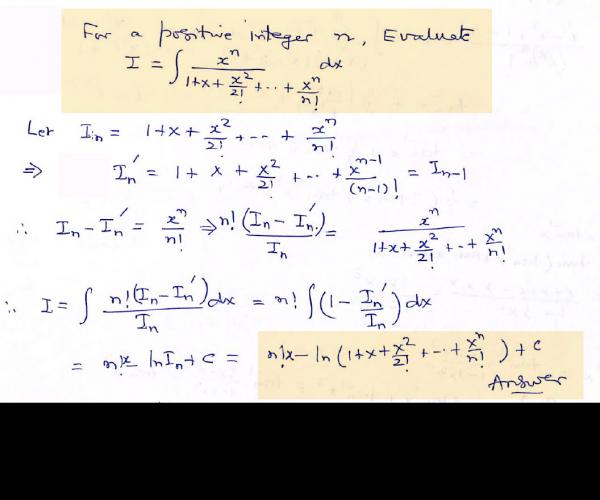 For a positive integer n, Evaluate
I = ∫ x^n / (1+x+x^2/2!+··+x^n/n!) dx
Let In = 1+x+x^2/2!+--+x^n/n!
⇒ In' = 1+x+x^2/2!+··+x^(n-1)/(n-1)! = In-1
∴ In - In' = x^n/n! ⇒ n!(In - In')/In = x^n / (1+x+x^2/2!+··+x^n/n!)
∴ I = ∫ n!(In - In')/In dx = n! ∫ (1 - In'/In) dx
= n!x - ln In + c = n!x - ln (1+x+x^2/2!+--+x^n/n!) + c
Answer